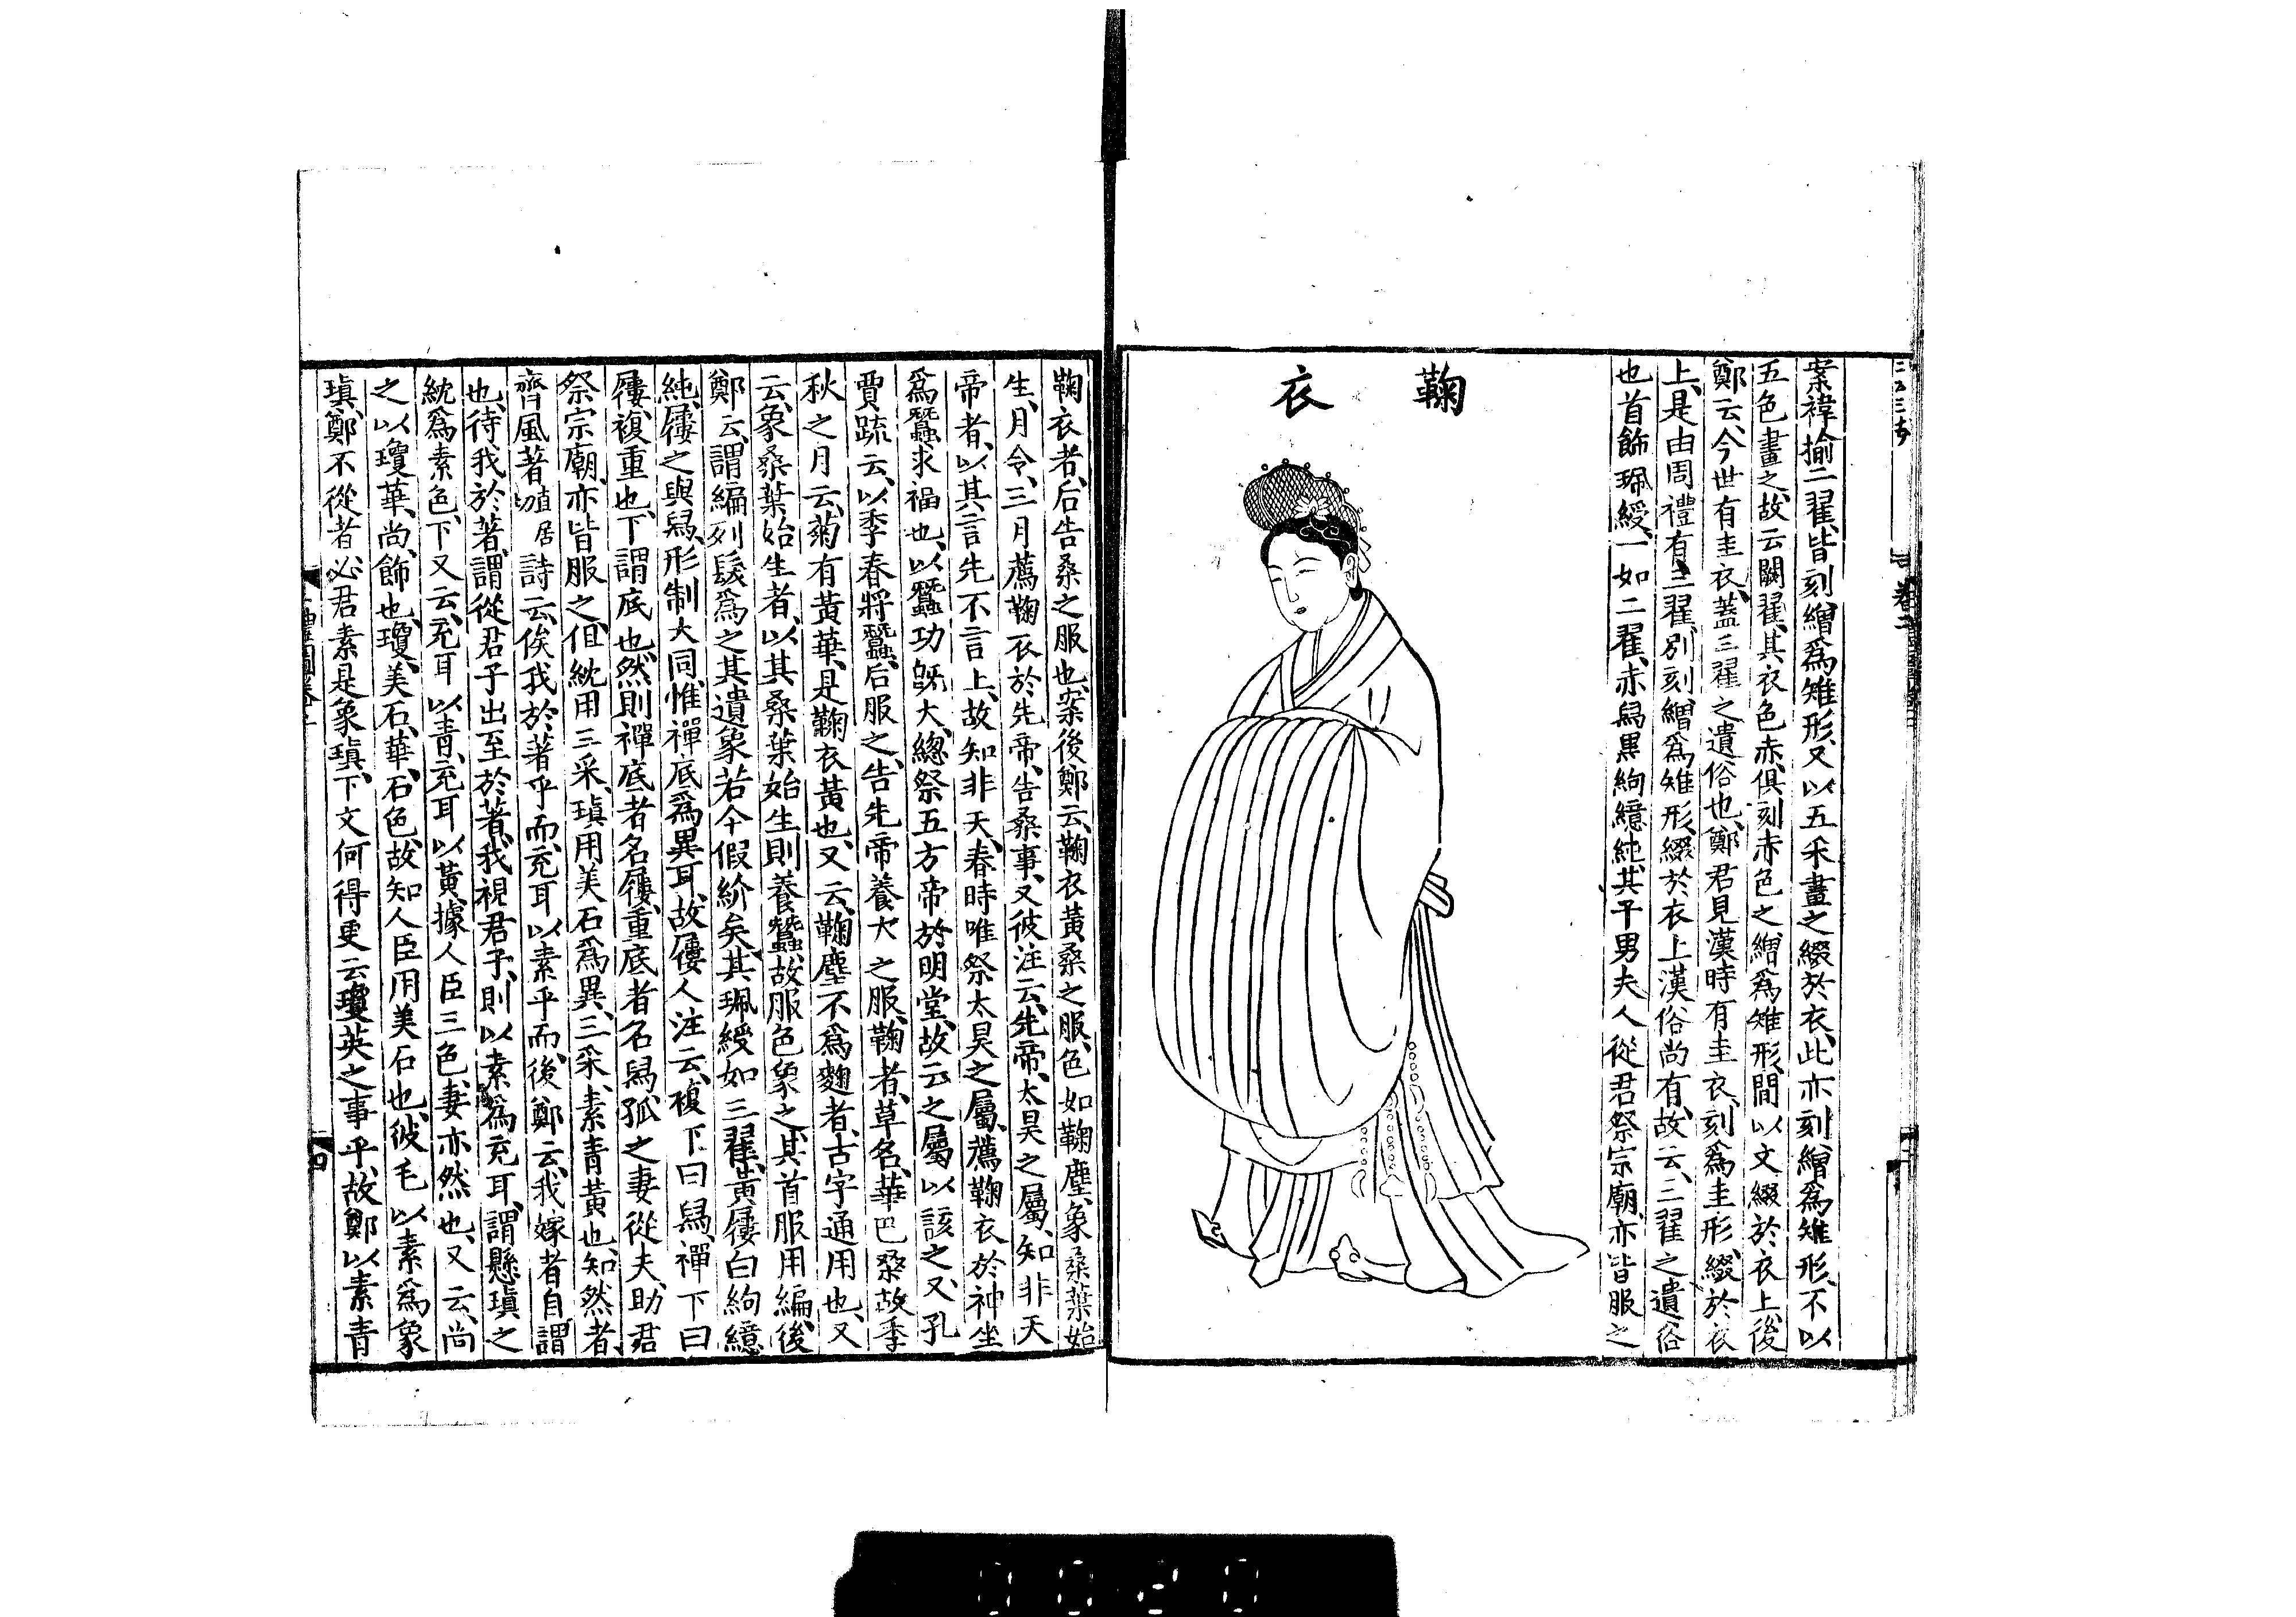 案褘揄二翟皆刻繒爲雉形又以五采畫之綴於衣此亦刻繒爲雉形不以
五色畫之故云闕翟其衣色赤俱刻赤色之繒爲雉形間以文綴於衣上後
鄭云今世有圭衣蓋三翟之遺俗也鄭君見漢時有圭衣刻爲圭形綴於衣
上是由周禮有三翟別刻繒爲雉形綴於衣上漢俗尚有故云三翟之遺俗
也首飾珮綬一如二翟赤舄黒絇繶純其子男夫人從君祭宗廟亦皆服之
鞠衣
鞠衣者后告桑之服也案後鄭云鞠衣黃桑之服色如鞠塵象桑葉始
生月令三月薦鞠衣於先帝告桑事又彼注云先帝太昊之屬知非天
帝者以其言先不言上故知非天春時唯祭太昊之屬薦鞠衣於神坐
爲蠶求福也以蠶功旣大總祭五方帝於明堂故云之屬以該之又孔
賈疏云以季春將蠶后服之告先帝養蚕之服鞠者草名華巴桑故季
秋之月云菊有黃華是鞠衣黃也又云鞠塵不爲麴者古字通用也又
云象桑葉始生者以其桑葉始生則養蠶故服色象之其首服用編後
鄭云謂編列髮爲之其遺象若今假紒矣其珮綬如三翟黃屨白絇繶
純屨之與舄形制大同惟襌底爲異耳故屨人注云複下曰舄襌下曰
屨複重也下謂底也然則襌底者名屨重底者名舄孤之妻從夫助君
祭宗廟亦皆服之但紞用三采瑱用美石爲異三采素青黃也知然者
齊風著直居詩云俟我於著乎而充耳以素乎而後鄭云我嫁者自謂
也待我於著謂從君子出至於著我視君子則以素爲充耳謂懸瑱之
紞爲素色下又云充耳以青充耳以黃據人臣三色妻亦然也又云尚
之以瓊華尚飾也瓊美石華石色故知人臣用美石也彼毛以素爲象
瑱鄭不從者必君素是象瑱下文何得更云瓊英之事乎故鄭以素青
0020